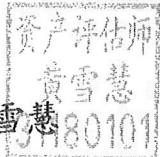 资产评估师
黄雪慧
雪慧
31180101